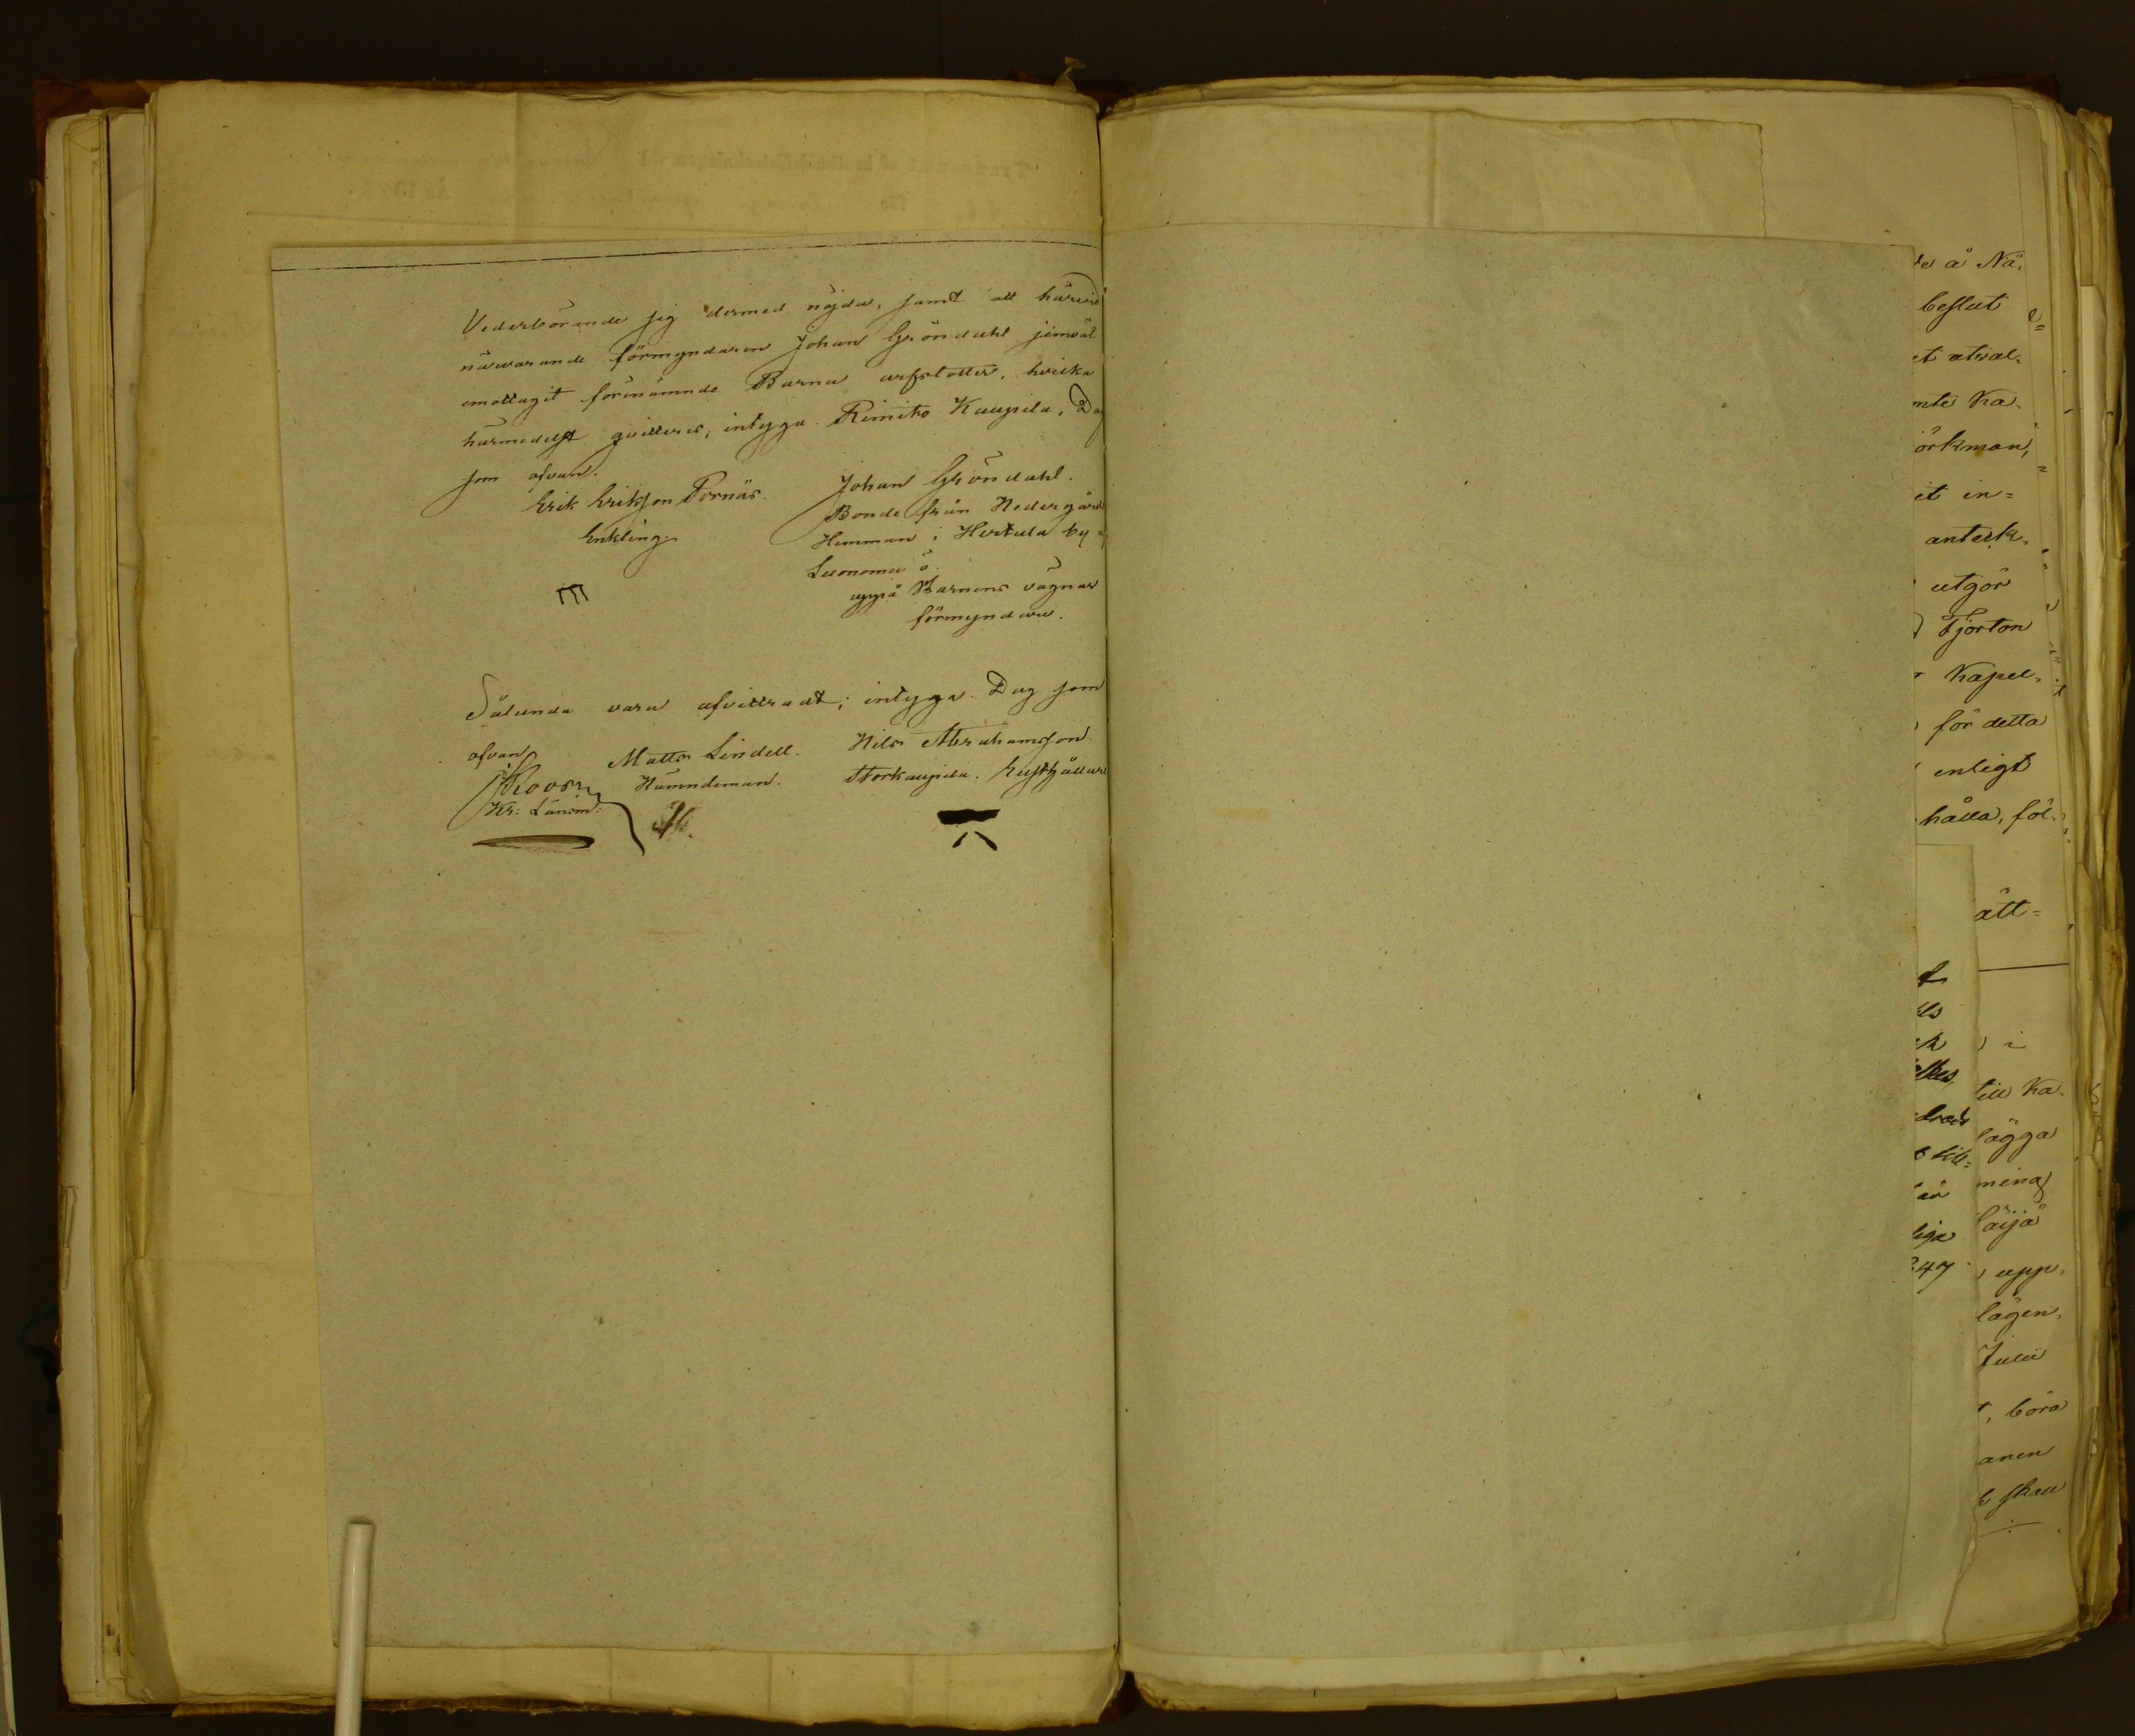 Vederbörande sig dermed nöjda, samt att härvid
närvarande förmyndaren Johan Gröndahl jemväl
emottagit förenämnde Barns arfslotter, hvilka
härmedelst quitteras; intyga. Rimito Kaupila, Dag
som ofvan.
Erik Erikson Pornäs. Johan Gröndahl.
Enkling. Bonde från Nedergård
Hemman i Hertula by
Luonnma ö
uppå Barnens vägnar
förmyndare.
Sålunda vara afvittradt; intyga. Dag som
ofvan
Matts Lindell. Nils Abrahamsson
Nämndeman. Storkaupila. Rusthållare
Kr: Länsm:
de å Nä-
beslut
et atval-
mte Ka-
örkman,
it in=
anteck-
utgör
Fjorton
Kapel-
för detta
enligt
hålla, föl-
ätt=
i
till Ka-
lägga
mina
läija
upp-
lägen-
Julii
, böra
anen
skall
är
liga
47